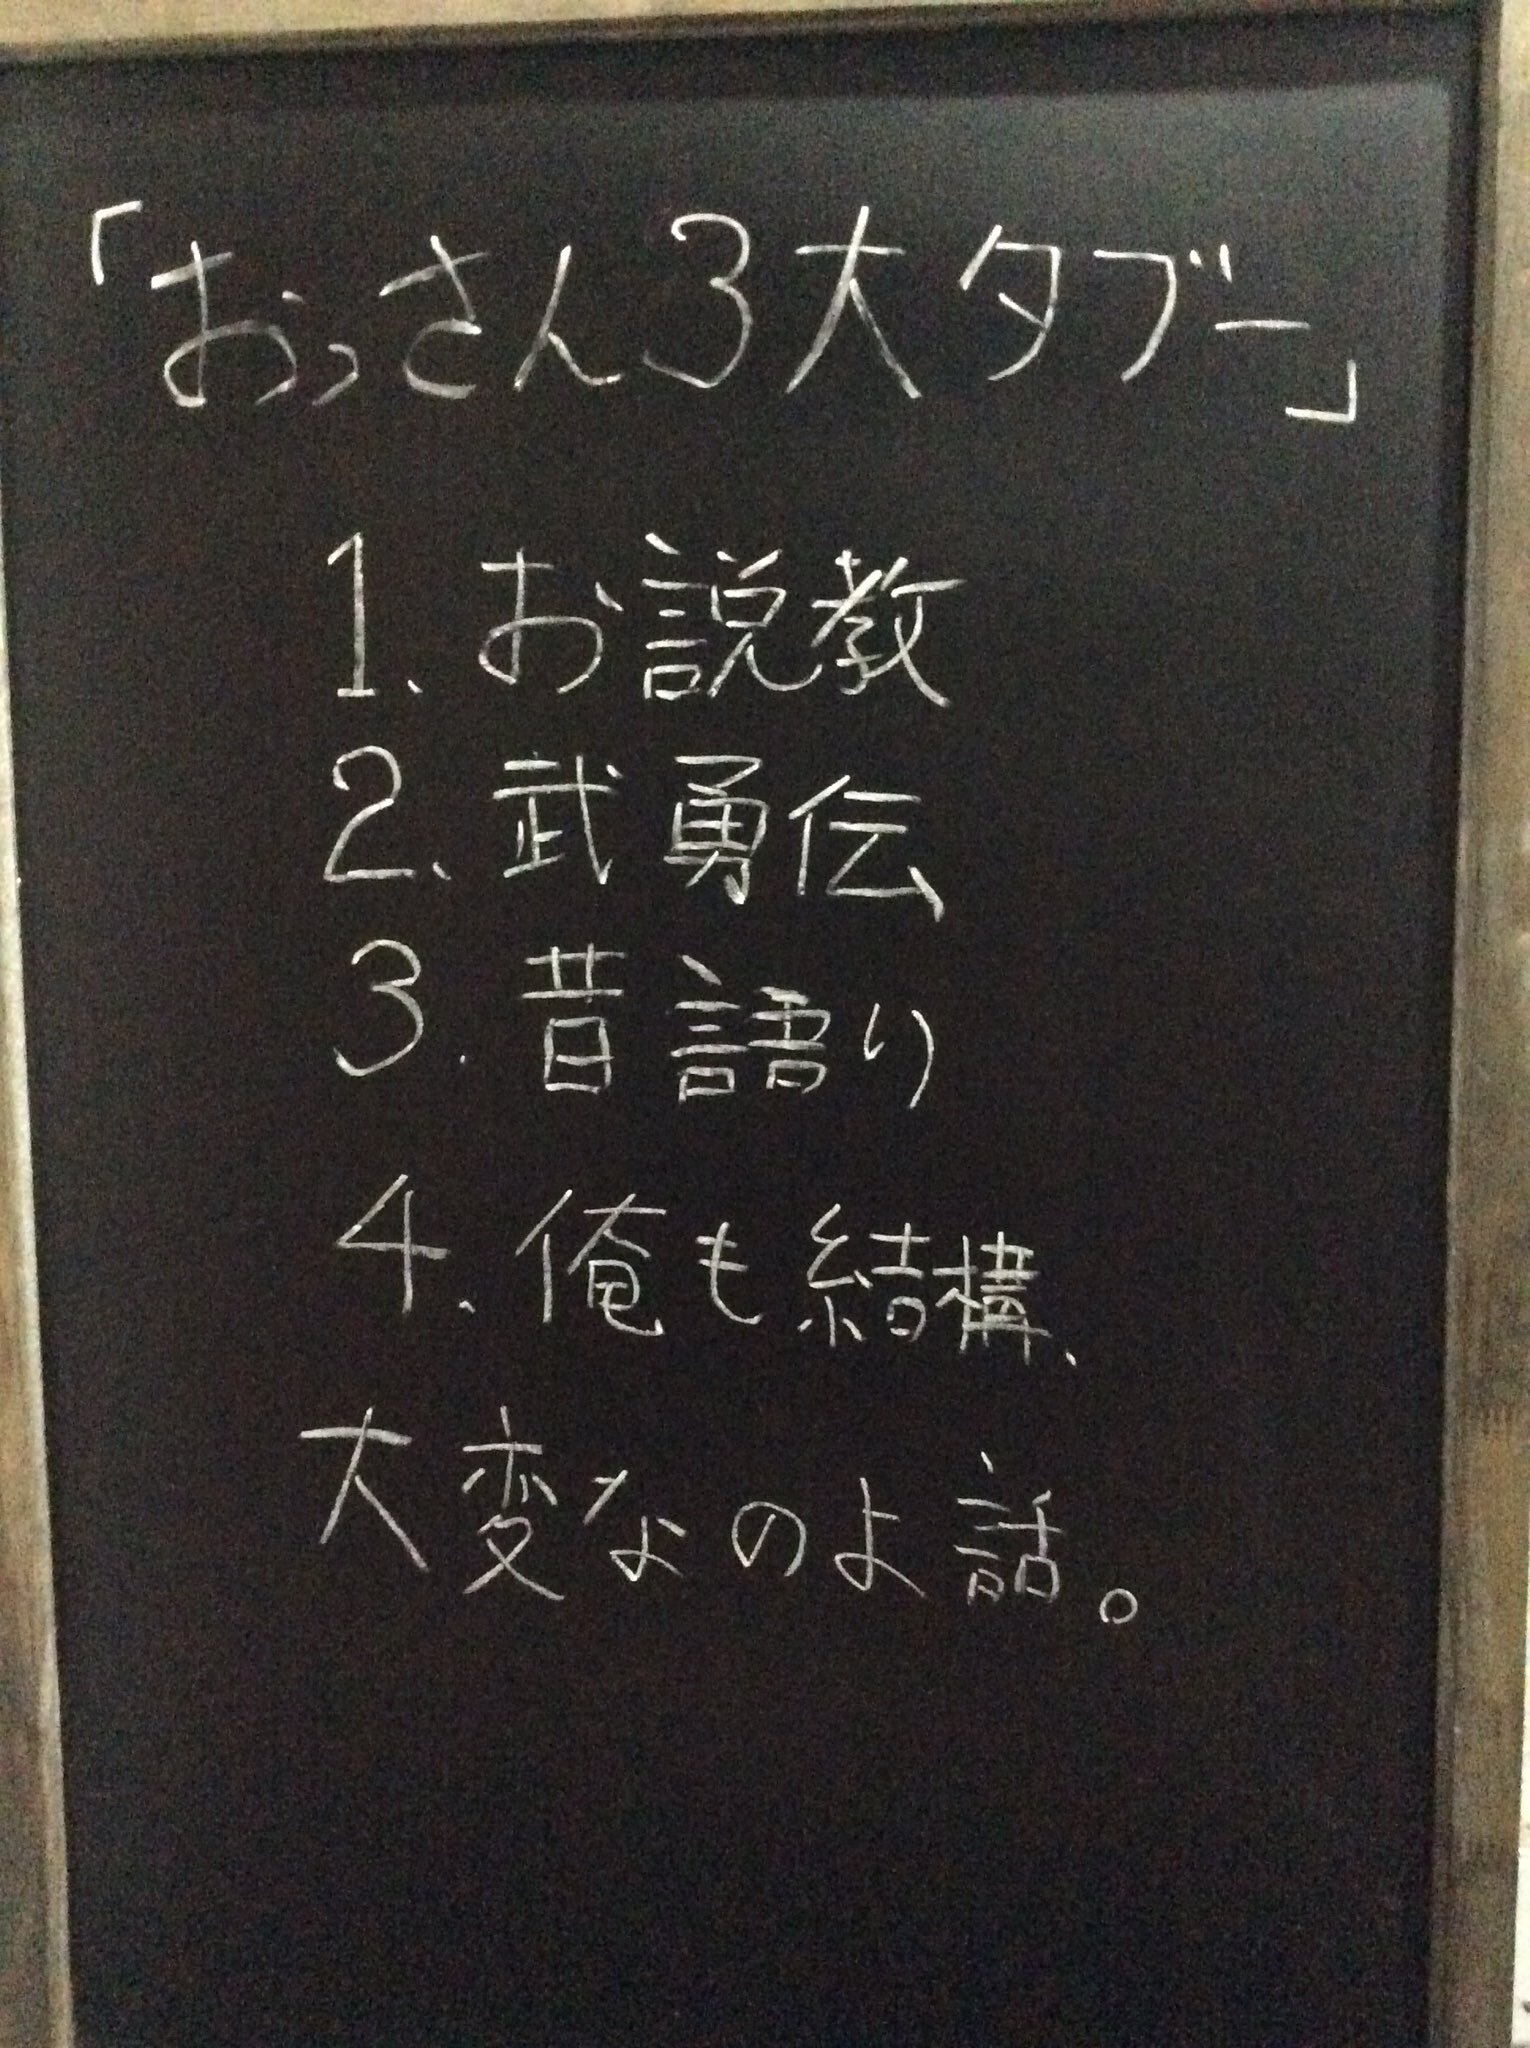 「おっさん3大タブー」
1、お説教
2、武勇伝
3.昔語り
4、俺も結構、
大変なのよ話。